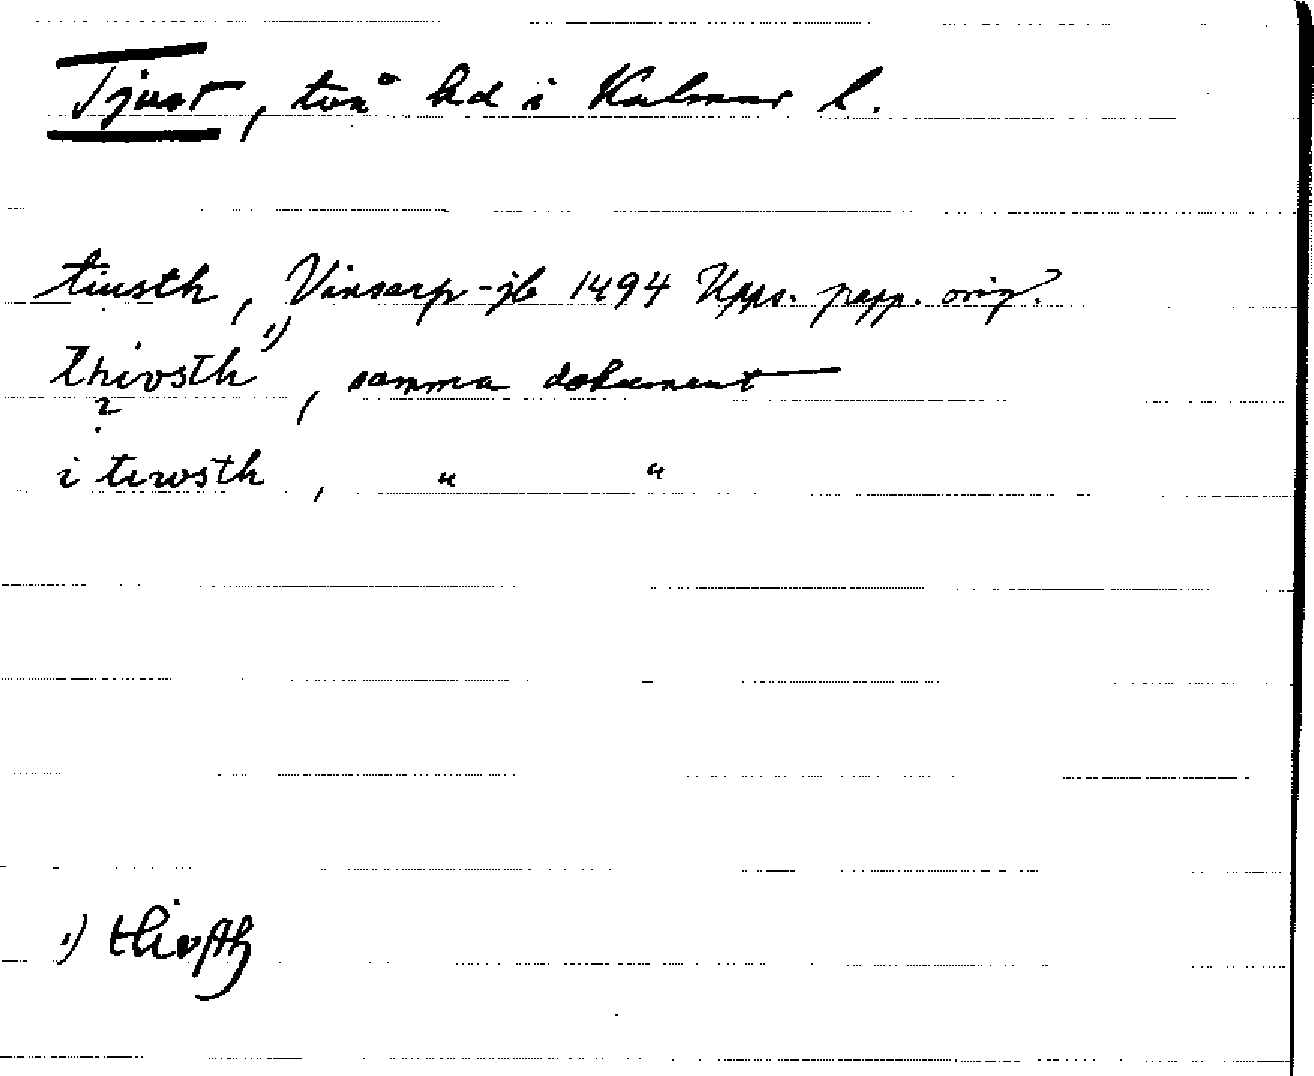 Tjust, två hd i Kalmar l.
tiusth, Vinsarp-jb 1494 Upps. papp. orig.
thivsth 1), samma dokument
?
i tiwsth, " "
1) thivsth